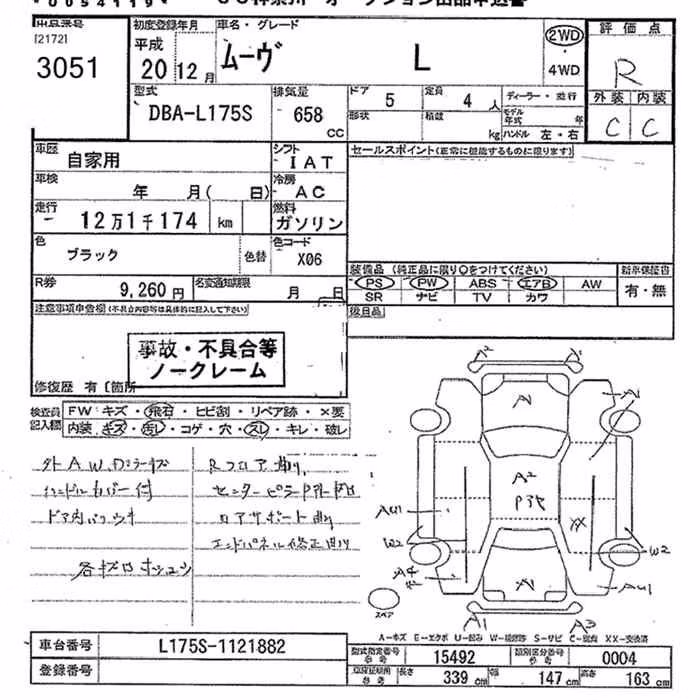 *0054119*
出品番号
[2172]
3051
初度登録年月
平成
20 12 月
車名・グレード
ムーヴ L
2WD
4WD
評価点
R
外装 内装
C C
型式
DBA-L175S
排気量
658
CC
ドア
5
定員
4 人
形状
積載
kg
ディーラー・並行
モデル年式 年
ハンドル 左・右
車歴
自家用
シフト
IAT
車検
年 月( 日)
冷房
AC
走行
12万1千174 km
燃料
ガソリン
色
ブラック
色替
色コード
X06
R券
9,260 円
名変通知期限
月 日
セールスポイント(正常に機能するものに限ります)
装備品 (純正品に限り〇をつけてください)
PS PW ABS エアB AW
SR ナビ TV カワ
新車保証書
有・無
後日品
注意事項申告欄(不具合内容等は具体的に記入して下さい)
事故・不具合等
ノークレーム
修復歴 有〔箇所
検査員
記入欄
FW キズ・飛石・ヒビ割・リペア跡・×要
内装・キズ・汚レ・コゲ・穴・スレ・キレ・破レ
ハンドルカバー付
Rフロア曲り
センターピラー
ロアサポート曲り
エンドパネル修正曲り
A2
A1
A1
A1
A2
P
AU1
XX
W2
W2
A4
AU1
A1
A3
スペア
A-キズ E-エクボ U-凹み W-補修跡 S-サビ C-腐蝕 XX-交換済
車台番号
L175S-1121882
登録番号
型式指定番号
参考
15492
類別区分番号
参考
0004
車庫証明用
参考
長さ
339 cm
幅
147 cm
高さ
163 cm